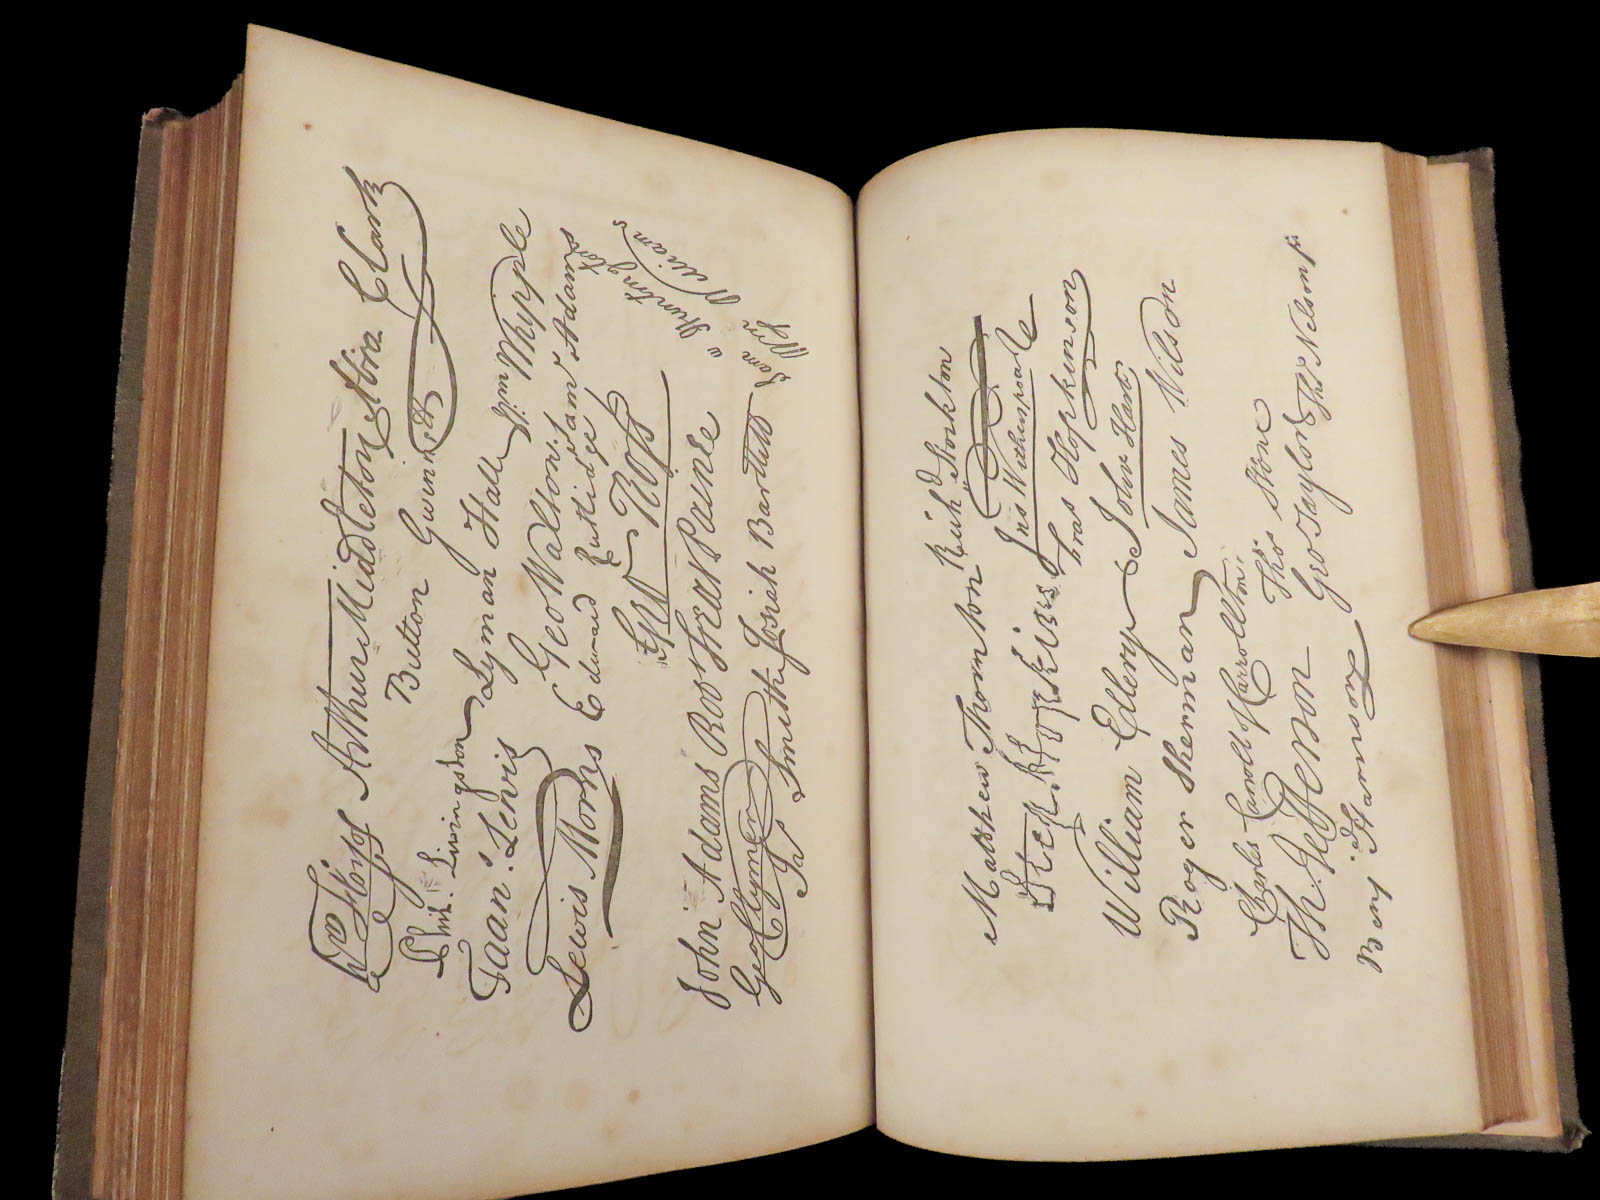 Wm Floyd Arthur Middleton Abra Clark
Button Gwinnett
Phil. Livingston Lyman Hall Wm Whipple
Fran.s Lewis Geo Walton. Sam.l Adams
Lewis Morris Edward Rutledge
Geo Ross
John Adams Robt Treat Paine Sam.l Huntington
Geo Clymer Josiah Bartlett Wm Williams
Jas Smith
Matthew Thornton Rich.d Stockton
Step. Hopkins Jno Witherspoon
Fras Hopkinson
William Ellery John Hart
Roger Sherman James Wilson
Charles Carroll of Carrollton, Thos Stone
Th. Jefferson Geo Taylor
Benj Harrison Thos Nelson jr.